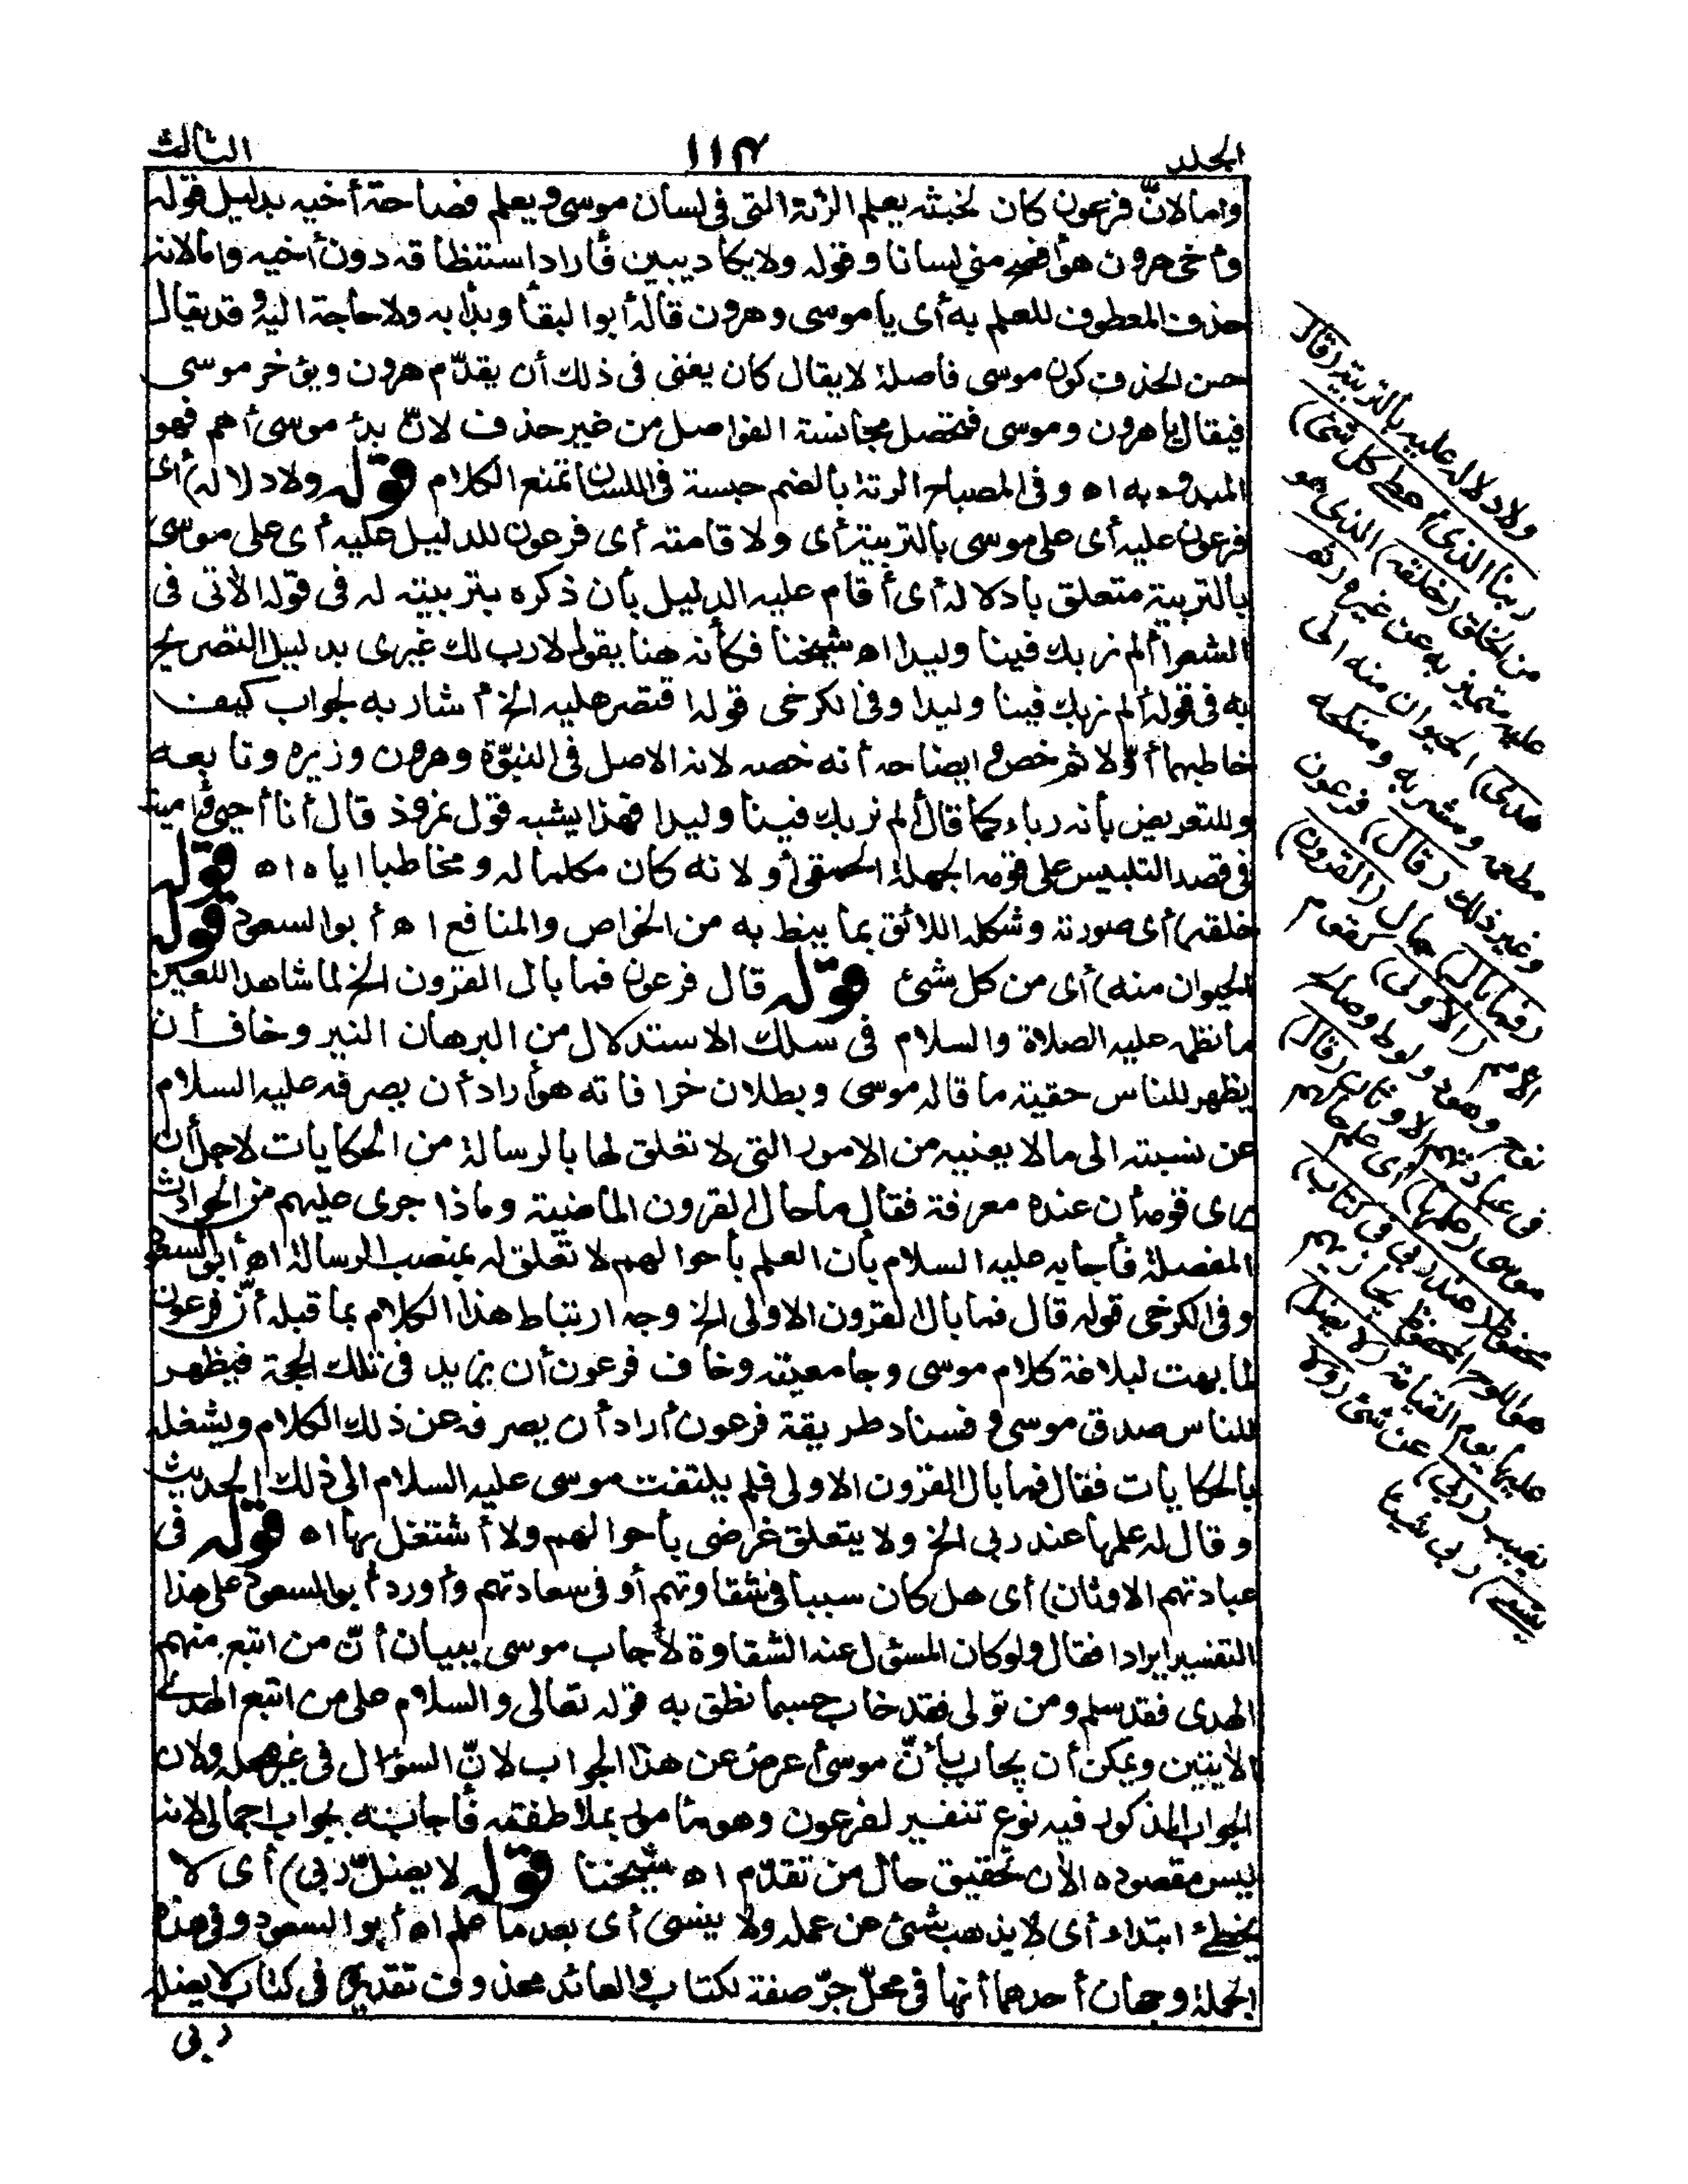 الجلد
١١٣
الثالث
واما لانّ فرعون كان لخبثه يعلم الرتة التى فى لسان موسى ويعلم فصاحة أخيه بدليل قوله
وأخى هرون هو أفصح منى لسانا وقوله ولا يكاد يبين فأراد استنطاقه دون أخيه واما لانه
حذف المعطوف للعلم به أى يا موسى وهرون قاله أبو البقا وبدأ به ولا حاجة اليه وقد يقال
حسن الحذف كون موسى فاصلة لا يقال كان يغنى فى ذلك أن يقدّم هرون ويؤخر موسى
فيقال يا هرون وموسى فتحصل مجانسة الفواصل من غير حذف لانّ بدء موسى أهم فهو
المبدوء به اه وفى المصباح الرتة بالضم حبسة فى اللسان تمنع الكلام قوله ولا دلالة) أى
فرعون عليه أى على موسى بالتربية أى ولا قامته أى فرعون للدليل عليه أى على موسى
بالتربية متعلق بادلاله أى أقام عليه الدليل بأن ذكره بتربيته له فى قوله الآتى فى
الشعرا ألم نربك فينا وليدا اه شيخنا فكأنه هنا يقول لا رب لك غيرى بدليل التصريح
به فى قوله ألم نربك فينا وليدا وفى الكرخى قوله اقتصر عليه الخ أشار به لجواب كيف
خاطبهما أوّلا ثم خص وايضاحه أنه خصه لانه الاصل فى النبوّة وهرون وزيره وتابعه
وللتعريض بأنه رباه كما قال ألم نربك فينا وليدا فهذا يشبه قول نمروذ قال أنا أحيى وأميت
فى قصد التلبيس على قومه الجهلة الحمقى أو لانه كان مكلما له ومخاطبا اياه اه قوله
خلقه) أى صورته وشكله اللائق بما ينط به من الخواص والمنافع اه أبو السعود قوله
الحيوان منه) أى من كل شئ قوله قال فرعون فما بال القرون الخ لما شاهد اللعين
ما نظمه عليه الصلاة والسلام فى سلك الاستدلال من البرهان النير وخاف أن
يظهر للناس حقية ما قاله موسى وبطلان خرافاته هو أراد أن يصرفه عليه السلام
عن نسبته الى ما لا يعنيه من الامور التى لا تعلق لها بالرسالة من الحكايات لاجل أن
يرى قومه أن عنده معرفة فقال ما حال القرون الماضية وماذا جرى عليهم من الحوادث
المفصلة فأجابه عليه السلام بأن العلم بأحوالهم لا تعلق له بمنصب الرسالة اه أبو السعود
وفى الكرخى قوله قال فما بال القرون الاولى الخ وجه ارتباط هذا الكلام بما قبله أنّ فرعون
لما بهت لبلاغة كلام موسى وجامعيته وخاف فرعون أن يزيد فى تلك الحجة فيظهر
للناس صدق موسى وفساد طريقة فرعون أراد أن يصرفه عن ذلك الكلام ويشغله
بالحكايات فقال فما بال القرون الاولى فلم يلتفت موسى عليه السلام الى ذلك الحديث
وقال له علمها عند ربى الخ ولا يتعلق غرضى بأحوالهم ولا أشتغل بها اه قوله فى
عبادتهم الاوثان) أى هل كان سببا فى شقاوتهم أو فى سعادتهم وأورد أبو السعود على هذا
التفسير ايرادا فقال ولو كان المسؤل عنه الشقاوة لأجاب موسى ببيان أنّ من اتبع منهم
الهدى فقد سلم ومن تولى فقد خاب حسبما نطق به قوله تعالى والسلام على من اتبع الهدى
الآيتين ويمكن أن يجاب بأنّ موسى أعرض عن هذا الجواب لانّ السؤال فى غير محله ولان
الجواب المذكور فيه نوع تنفير لفرعون وهو مأمور بملاطفته فأجابه بجواب اجمالى لانه
ليس مقصوده الآن تحقيق حال من تقدّم اه شيخنا قوله لا يضلّ ربى) أى لا
يخطئ ابتداء أى لا يذهب شئ عن علمه ولا ينسى أى بعد ما علم اه أبو السعود وفى هذه
الجملة وجهان أحدهما أنها فى محلّ جرّ صفة لكتاب والعائد محذوف تقديره فى كتاب لا يضله
ربى
ولا دلاله عليه بالتربية (قال
ربنا الذى أعطى كل شئ)
من الخلق (خلقه) الذى هو
عليه متميز به عن غيره (ثم
هدى) الحيوان منه الى
مطعمه ومشربه ومنكحه
وغير ذلك (قال) فرعون
(فما بال) حال (القرون)
الامم (الاولى) كقوم
نوح وهود ولوط وصالح
فى عبادتهم الاوثان (قال)
موسى (علمها) أى علم حالهم
محفوظ (عند ربى فى كتاب)
هو اللوح المحفوظ يجازيهم
عليها يوم القيامة (لا يضل)
يغيب (ربى) عن شئ (ولا
ينسى) ربى شيئا